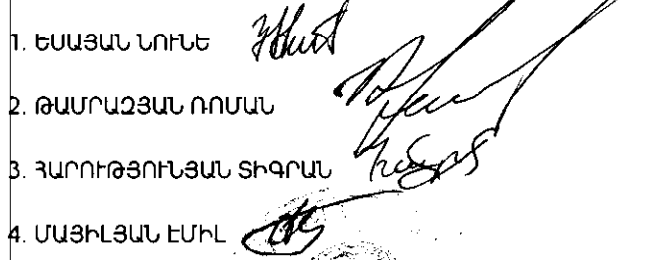 1. ԵՍԱՅԱՆ ՆՈՒՆԵ
2. ԹԱՄՐԱԶՅԱՆ ՌՈՄԱՆ
3. ՀԱՐՈՒԹՅՈՒՆՅԱՆ ՏԻԳՐԱՆ
4. ՄԱՅԻԼՅԱՆ ԷՄԻԼ